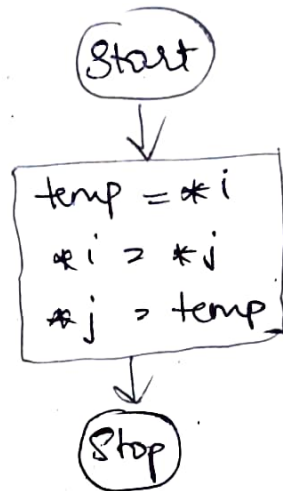 Start
temp = *i
*i = *j
*j = temp
Stop